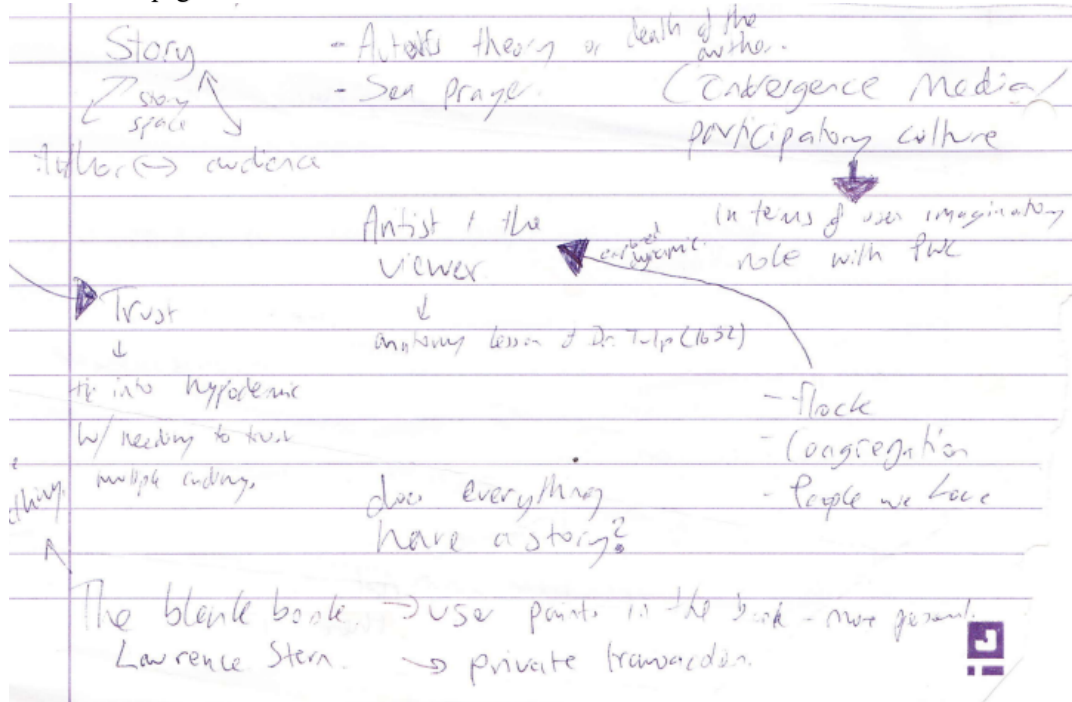 Story
story
space
Author ↔ audience
- Auteurs theory or death of the
author.
- Sea Prayer.
Convergence Media/
participatory culture
in terms of user imaginatory
role with PWL
Artist + the
viewer.
dynamic.
anatomy lesson of Dr. Tulp (1632)
Trust
tie into hypodermic
w/ needing to trust
multiple endings.
- flock
- Congregation
- People we Love
does everything
have a story?
The blank book → user paints in the book - more personal.
Lawrence Stern. → private transaction.